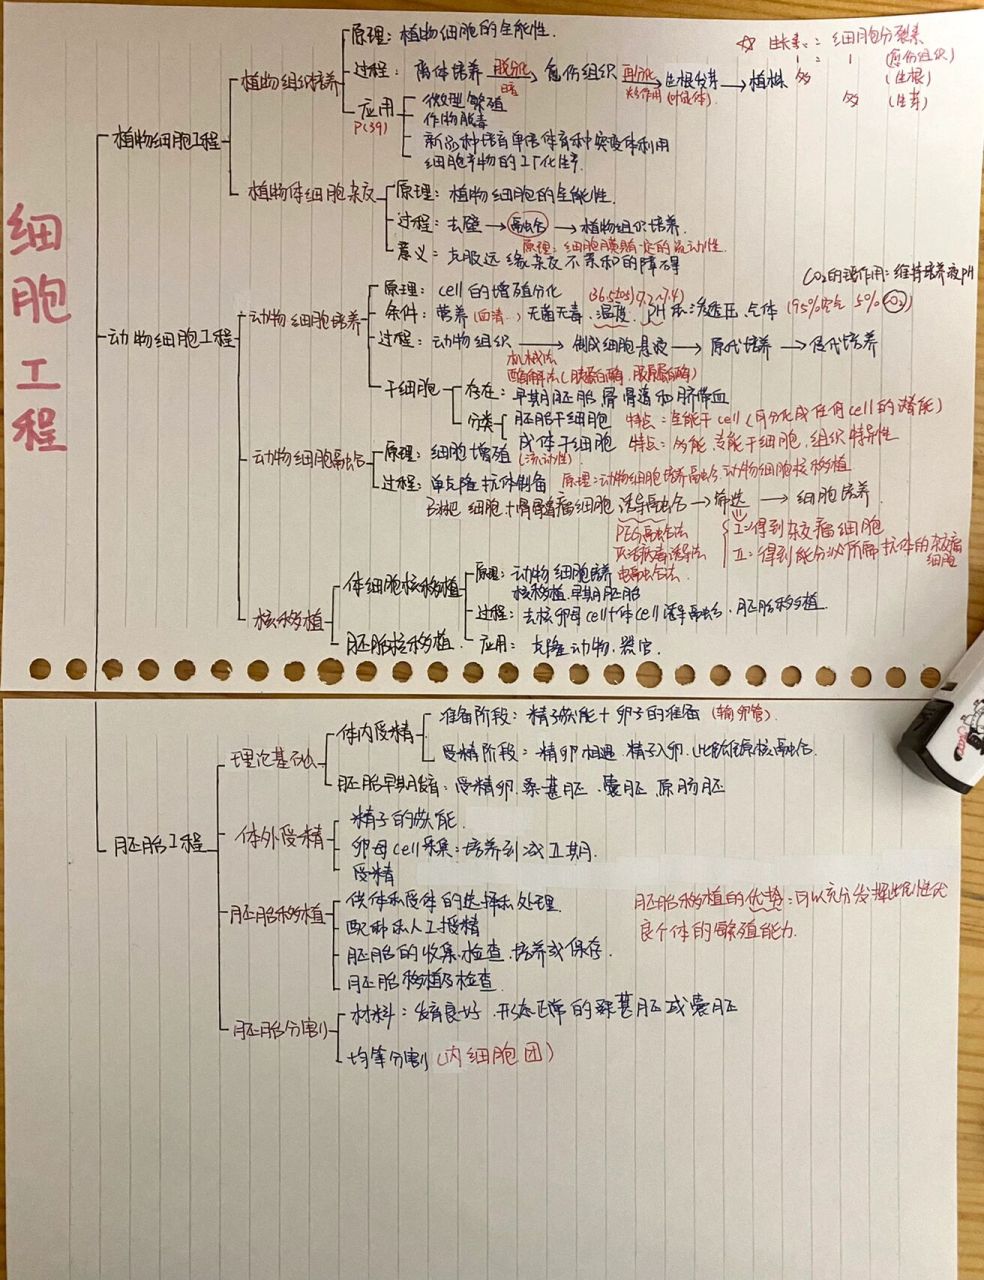 细胞工程
植物细胞工程
植物组织培养
原理：植物细胞的全能性.
过程：离体培养 脱分化 避光 愈伤组织 再分化 光照作用 生根发芽 → 植株
应用 P(39)
微型繁殖
作物脱毒
新品种培育单倍体育种突变体利用
细胞产物的工厂化生产
☆ 生长素：细胞分裂素
1 : 1 (愈伤组织)
多 (生根)
多 (生芽)
植物体细胞杂交
原理：植物细胞的全能性.
过程：去壁 → 融合 → 植物组织培养.
原理：细胞膜具有一定的流动性.
意义：克服远缘杂交不亲和的障碍
动物细胞工程
CO₂的作用：维持培养液pH
动物细胞培养
原理：cell的增殖分化 (36.5±0.5) (7.2~7.4)
条件：营养(血清..) 无菌无毒.温度. PH 渗透压 气体 (95%空气 5%CO₂)
过程：动物组织 → 制成细胞悬液 → 原代培养 → 传代培养
机械法
酶解法(胰蛋白酶、胶原蛋白酶)
干细胞
存在：早期胚胎 骨髓和脐带血
分类
胚胎干细胞 特点：全能干cell (可分化成任何cell的潜能)
成体干细胞 特点：多能,专能干细胞,组织特异性
动物细胞融合
原理：细胞增殖 (流动性)
过程：单克隆抗体制备 原理：动物细胞培养融合.动物细胞核移植
B淋巴细胞+骨髓瘤细胞 诱导融合 → 筛选 → 细胞培养.
PEG融合法
灭活病毒诱导法
电融合法.
I：得到杂交瘤细胞
II：得到能分泌所需抗体的杂交瘤细胞
核移植
体细胞核移植
胚胎核移植
原理：动物细胞培养
核移植.早期胚胎
过程：去核卵母cell+体cell诱导融合、胚胎移植.
应用：克隆动物.器官.
胚胎工程
理论基础
体内受精
准备阶段：精子获能+卵子的准备 (输卵管)
受精阶段：精卵相遇.精子入卵.雌雄原核融合.
胚胎早期发育：受精卵.桑葚胚.囊胚.原肠胚
体外受精
精子的获能.
卵母cell采集：培养到减Ⅱ期.
受精
胚胎移植
供体和受体的选择和处理.
配种或人工授精
胚胎的收集.检查.培养或保存.
胚胎移植及检查.
胚胎移植的优势：可以充分发挥雌性优良个体的繁殖能力.
胚胎分割
材料：发育良好.形态正常的桑葚胚或囊胚
均等分割(内细胞团)